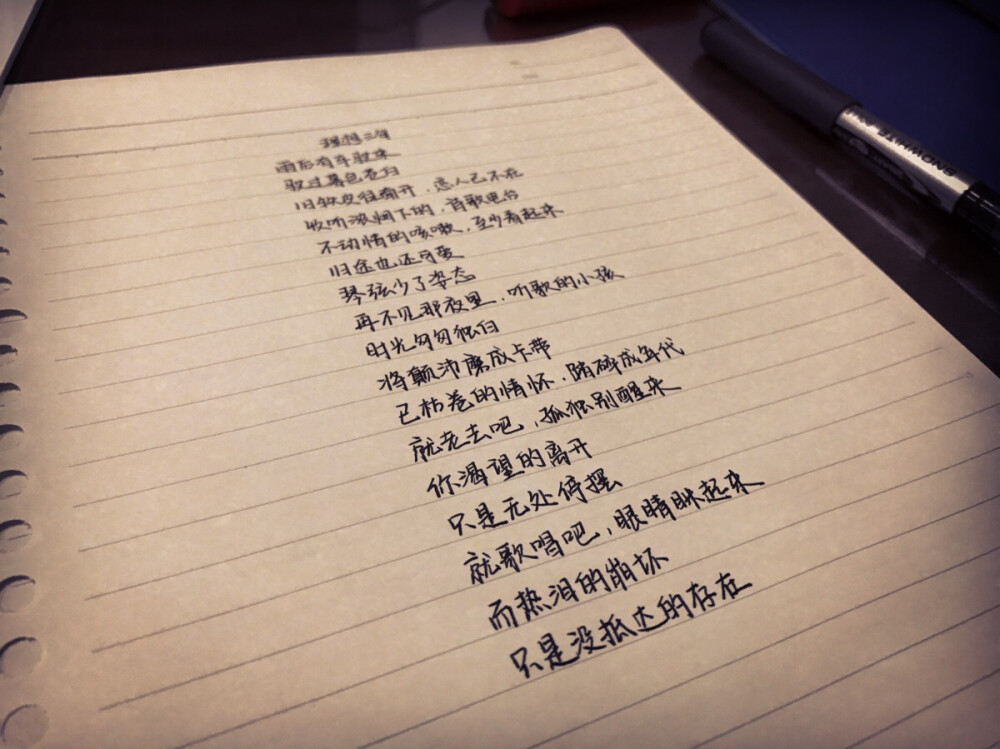 理想三旬
雨后有车驶来
驶过暮色苍白
旧铁皮往南开，恋人已不在
收听浓烟下的，诗歌电台
不动情的咳嗽，至少看起来
归途也还可爱
琴弦少了姿态
再不见那夜里，听歌的小孩
时光匆匆独白
将颠沛磨成卡带
已枯卷的情怀，踏碎成年代
就老去吧，孤独别醒来
你渴望的离开
只是无处停摆
就歌唱吧，眼睛眯起来
而热泪的崩坏
只是没抵达的存在
SNOWHITE